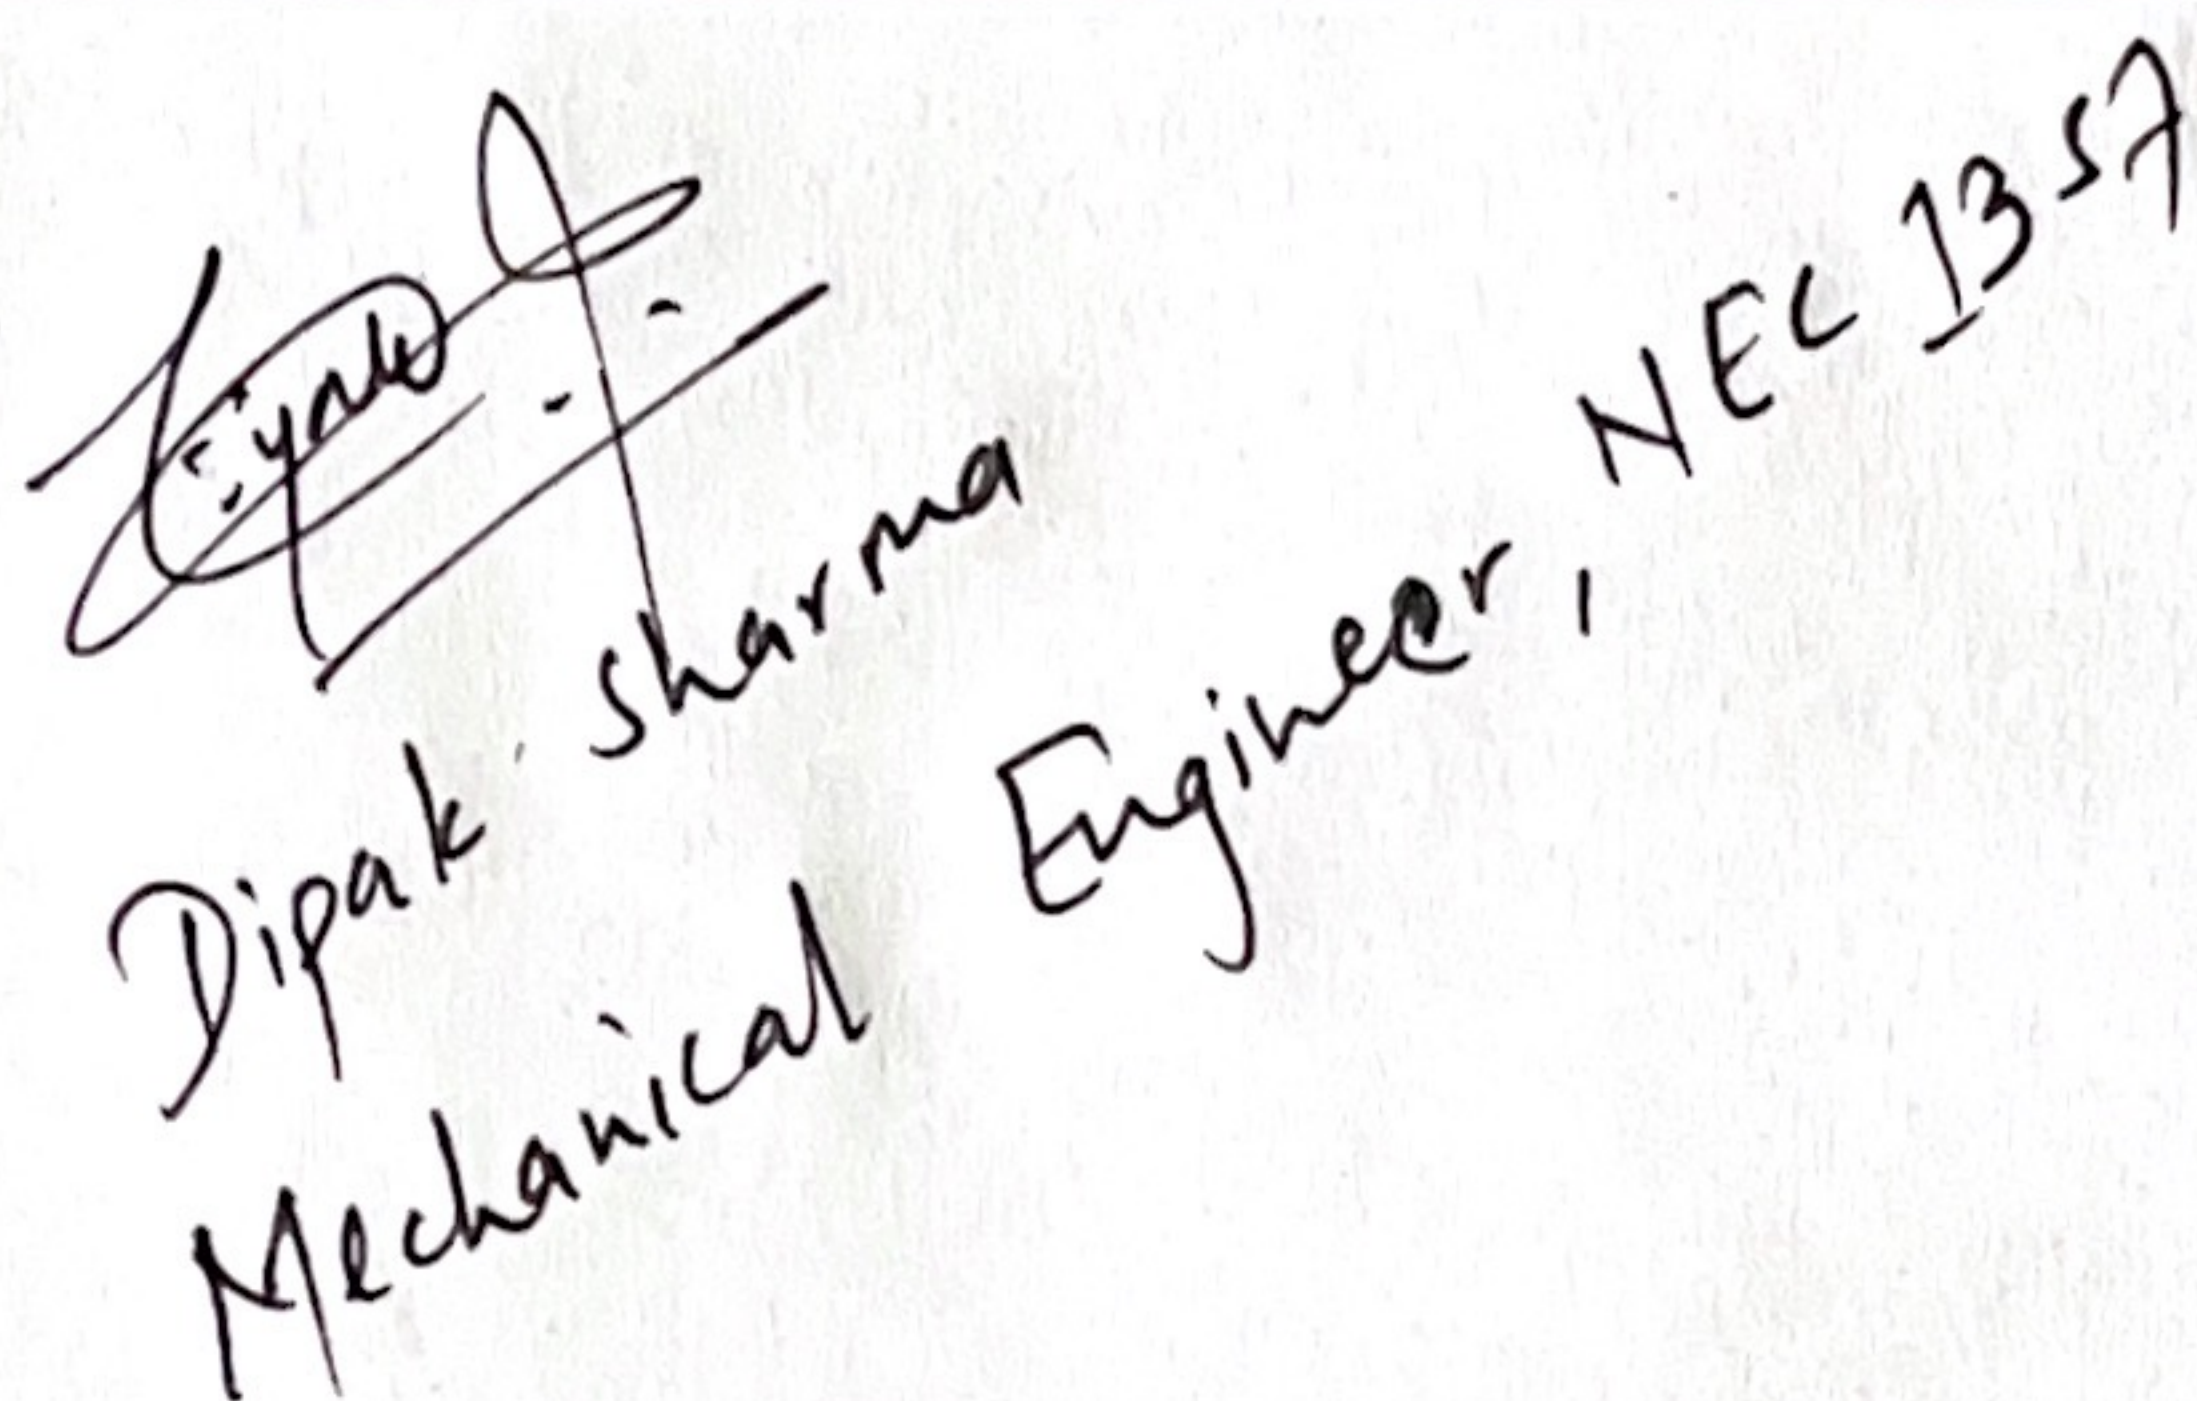 Dipak Sharma
Mechanical Engineer, NEC 1357